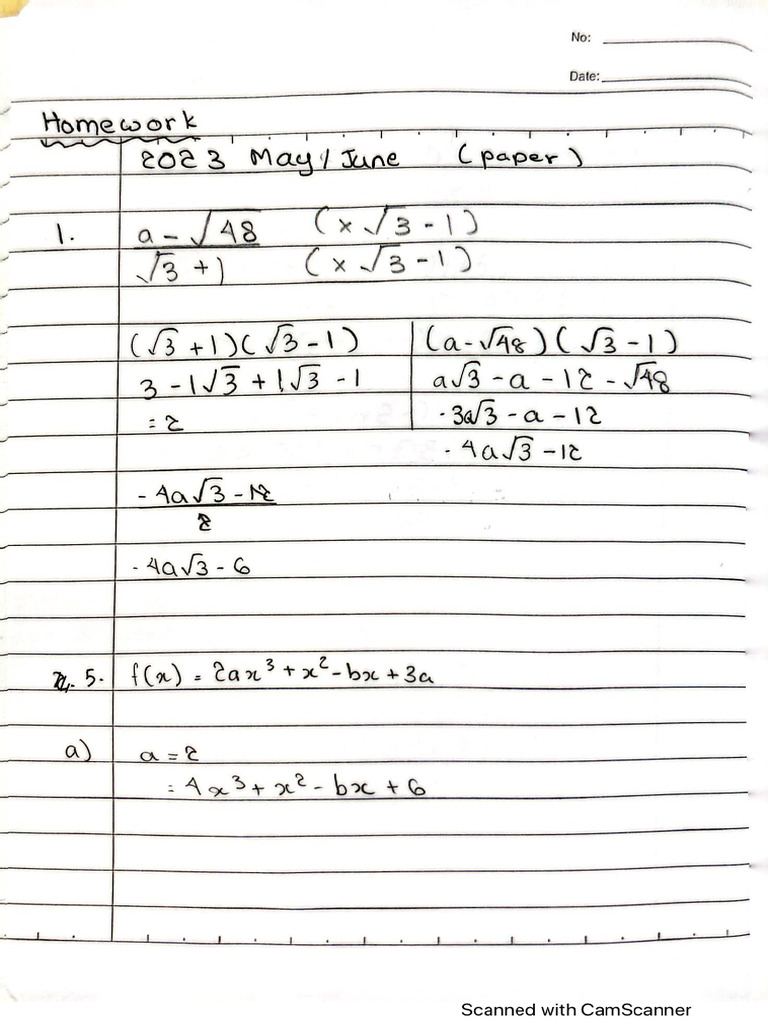 No:
Date:
Homework
2023 May / June (paper)
1. a - √48 (×√3 - 1)
√3 + 1 (×√3 - 1)
(√3 + 1)(√3 - 1)
3 - 1√3 + 1√3 - 1
= 2
(a - √48)(√3 - 1)
a√3 - a - 12 - √48
- 3a√3 - a - 12
- 4a√3 - 12
- 4a√3 - 12
2
- 4a√3 - 6
5. f(x) = 2ax³ + x² - bx + 3a
a) a = 2
= 4x³ + x² - bx + 6
Scanned with CamScanner